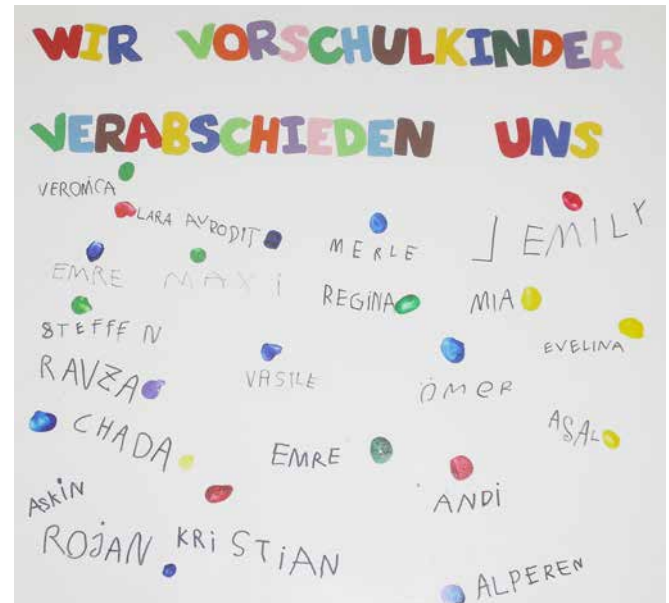 WIR VORSCHULKINDER
VERABSCHIEDEN UNS
VERONICA
LARA AVRODIT
MERLE
EMILY
EMRE
MAXI
REGINA
MIA
STEFFEN
EVELINA
RAVZA
VASILE
ÖMER
CHADA
EMRE
ASAL
ASKIN
ANDİ
ROJAN
KRiSTiAN
ALPEREN